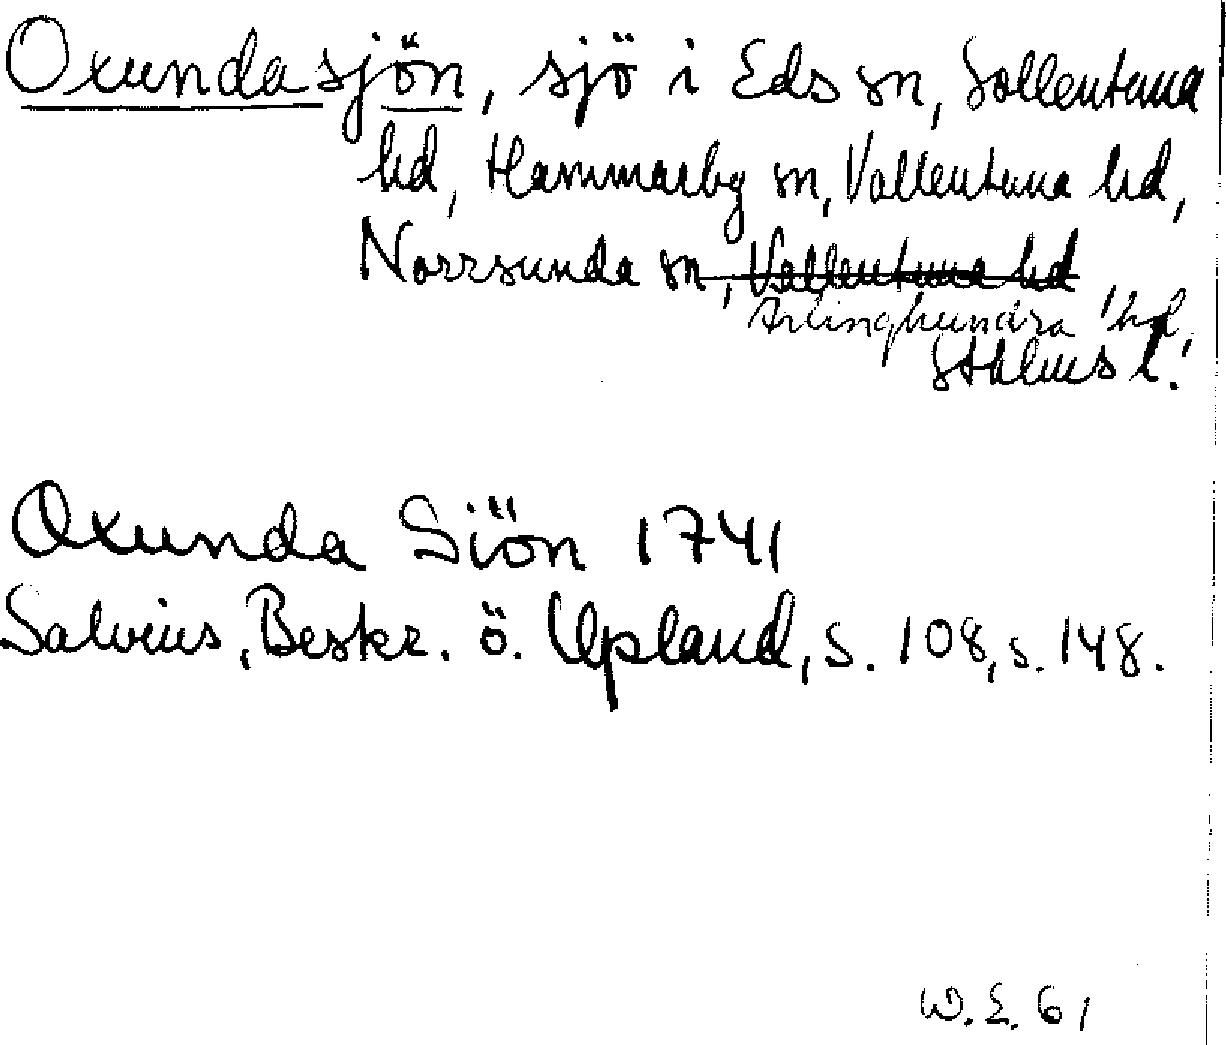 Oxundasjön, sjö i Eds sn, Sollentuna
hd, Hammarby sn, Vallentuna hd,
Norrsunda sn, Vallentuna hd
Ärlinghundra hd,
Sthlms l.
Oxunda Siön 1741
Salvius, Beskr. ö. Upland, s. 108, s. 148.
W.E. 61